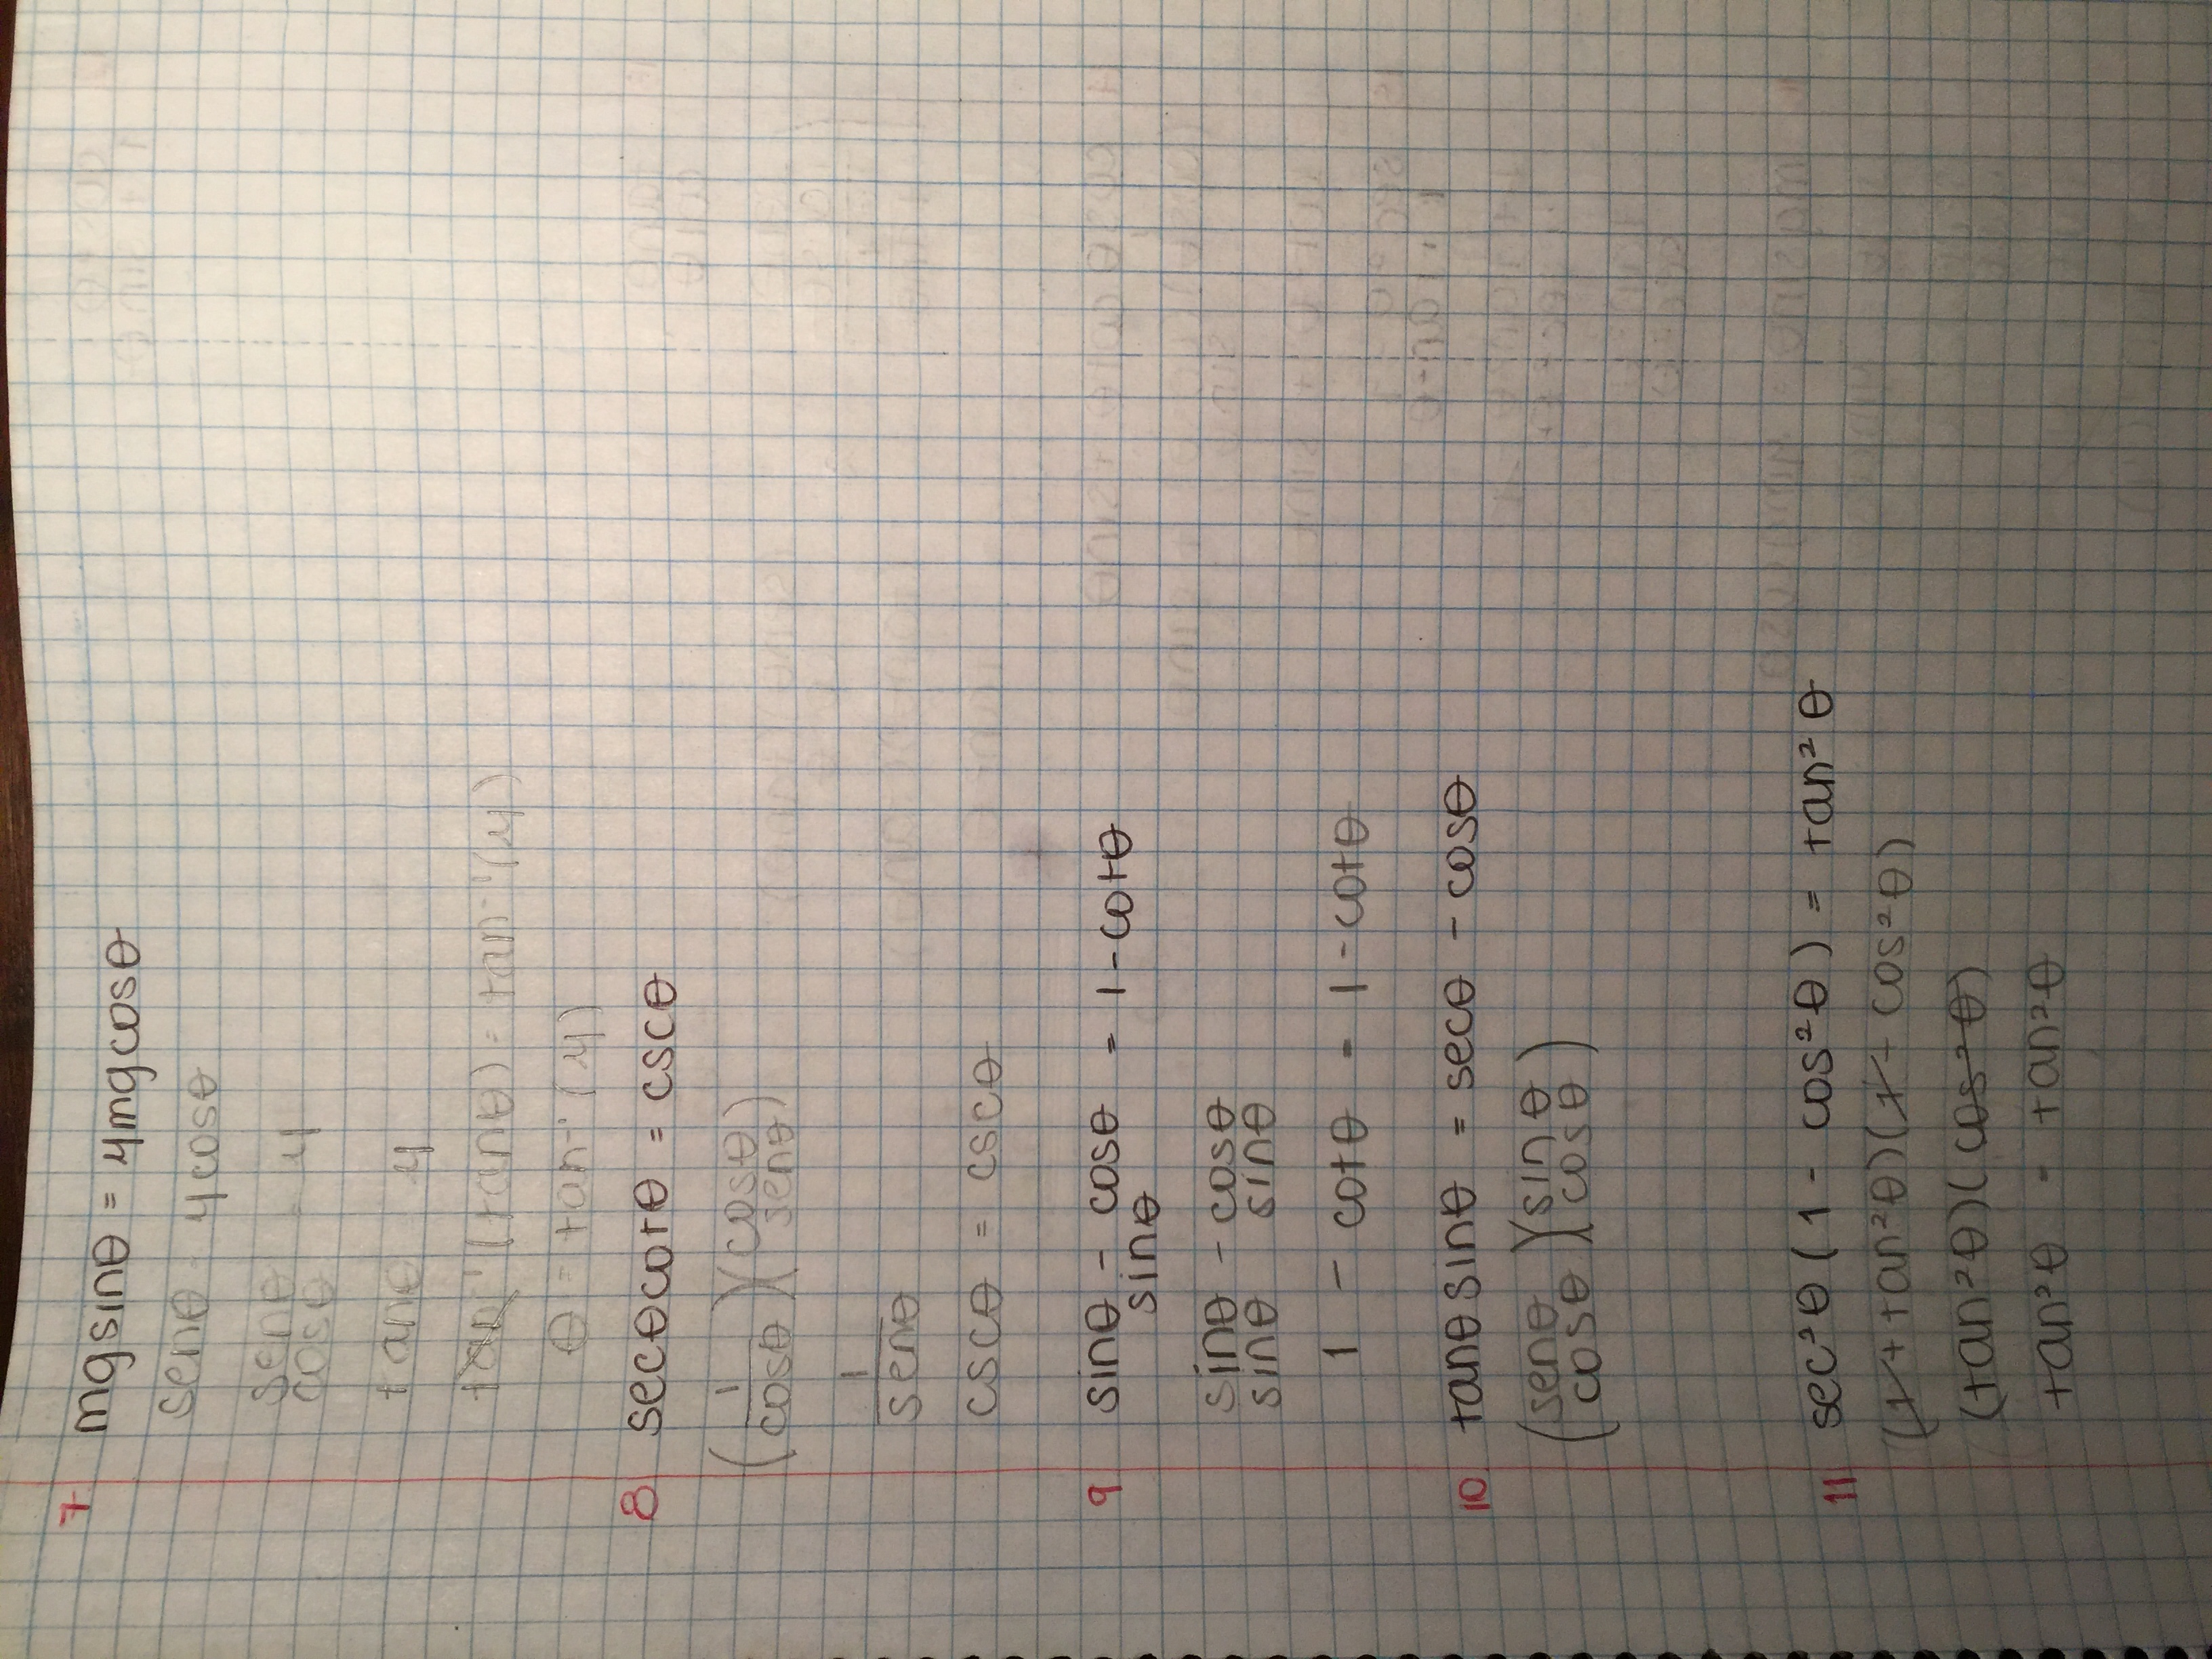 7 mg sinθ = μmg cosθ
senθ = μcosθ
senθ = μ
cosθ
tanθ μ
tan⁻¹(tanθ) = tan⁻¹(μ)
θ = tan⁻¹(μ)
8 secθcotθ = cscθ
(1/cosθ)(cosθ/senθ)
1
senθ
cscθ = cscθ
9 sinθ - cosθ = 1 - cotθ
sinθ
sinθ - cosθ
sinθ sinθ
1 - cotθ = 1 - cotθ
10 tanθ sinθ = secθ - cosθ
(senθ)(sinθ)
cosθ cosθ
11 sec²θ (1 - cos²θ) = tan²θ
(1 + tan²θ)(1 + cos²θ)
(tan²θ)(cos²θ)
tan²θ = tan²θ